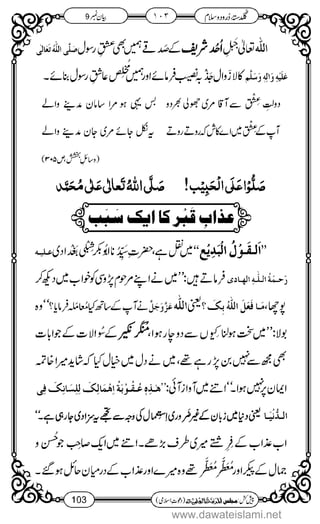 گلدستۂ دُرود و سلام ۱۰۳ بیان نمبر 9
اللہ تعالیٰ جَبَلِ اُحُد شریف کے صَدقے ہمیں بھی عشقِ رسول صلَّی اللہُ تَعَالٰی
عَلَیْہِ وَاٰلِہٖ وَسَلَّم کا لازوال جذبہ نصیب فرمائے اور ہمیں مُخلِص عاشقِ رسول بنائے۔
دولتِ عشق سے آقا مری جھولی بھر دو یہی بس ہو مرا سامان مدینے والے
آپ کے عشق میں اے کاش کہ روتے روتے یہ نکل جائے مری جان مدینے والے
(وسائلِ بخشش، ص ۳۰۵)
صَلُّوْا عَلَی الْحَبِیْب! صَلَّی اللہُ تَعَالٰی عَلٰی مُحَمَّد
عذابِ قَبْر کا ایک سَبَب
”اَلْقَوْلُ الْبَدِیْع“ میں نقل ہے، حضرتِ سیِّدُنا ابوبکر شِبلی بغدادی علیہ
رَحْمَۃُ اللہِ الہَادِی فرماتے ہیں: ”میں نے اپنے مرحوم پڑوسی کو خواب میں دیکھ کر
پوچھا، مَا فَعَلَ اللہُ بِکَ؟ یعنی اللہ عَزَّوَجَلَّ نے آپ کے ساتھ کیا معاملہ فرمایا؟“ وہ
بولا: ”میں سخت ہولناکیوں سے دو چار ہوا، مُنکَر نکیر کے سُوالات کے جوابات
بھی مجھ سے نہیں بن پڑ رہے تھے، میں نے دل میں خیال کیا کہ شاید میرا خاتمہ
ایمان پر نہیں ہوا۔“ اتنے میں آواز آئی: ”ھٰذِہٖ عُقُوْبَۃُ اِھْمَالِکَ لِلِسَانِکَ فِی
الدُّنْیَا یعنی دنیا میں زبان کے غیر ضروری استعمال کی وجہ سے تجھے یہ سزا دی جا رہی ہے۔“
اب عذاب کے فرشتے میری طرف بڑھے۔ اتنے میں ایک صاحب جو حُسن و
جمال کے پیکر اور مُعَطَّر مُعَطَّر تھے وہ میرے اور عذاب کے درمیان حائل ہو گئے۔
103
www.dawateislami.net